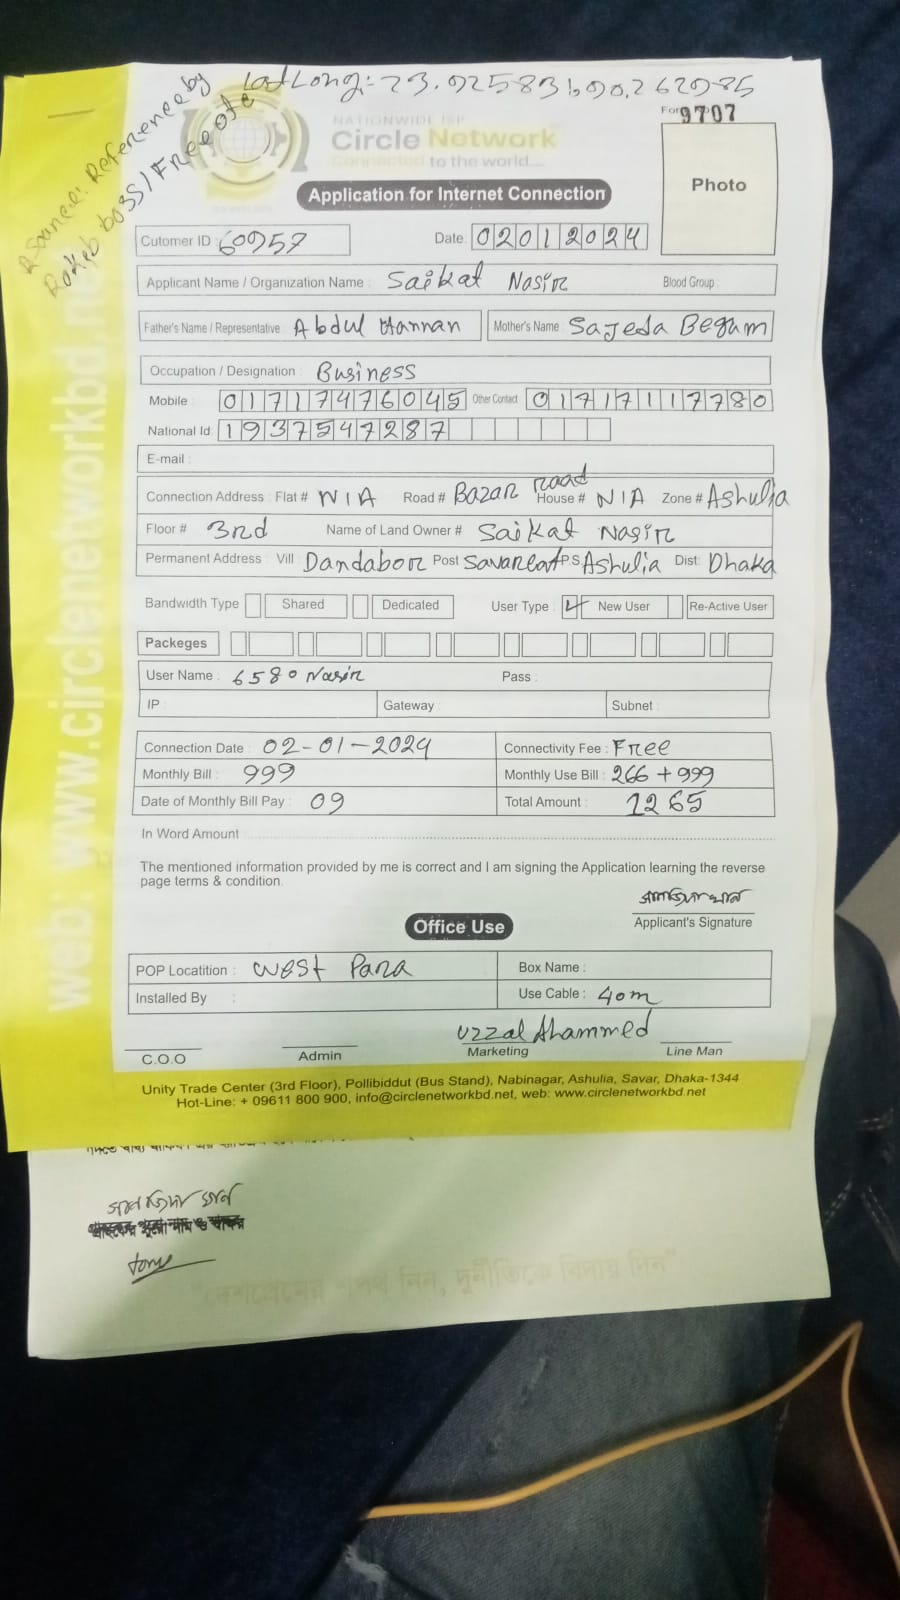 Lat Long:- 23.925836,90.262985
Source: Reference by
Rakeb boss / Free otc
NATIONWIDE ISP
Circle Network
Connected to the world....
9707
Photo
Application for Internet Connection
Cutomer ID : 60957
Date: 02012024
Applicant Name / Organization Name : Saikat Nasir Blood Group :
Father's Name / Representative : Abdul Hannan Mother's Name : Sajeda Begum
Occupation / Designation : Business
Mobile : 01717476045 Other Contact : 01717117780
National Id : 1937547287
E-mail :
Connection Address : Flat # N/A Road # Bazar Road House # N/A Zone # Ashulia
Floor # 3rd Name of Land Owner # Saikat Nasir
Permanent Address : Vill : Dandabor Post : P.S. Ashulia Dist: Dhaka
Bandwidth Type Shared Dedicated User Type : New User Re-Active User
Packeges
User Name : 6580 Nasir Pass :
IP : Gateway : Subnet :
Connection Date : 02-01-2024 Connectivity Fee : Free
Monthly Bill : 999 Monthly Use Bill : 266 + 999
Date of Monthly Bill Pay : 09 Total Amount : 1265
In Word Amount
The mentioned information provided by me is correct and I am signing the Application learning the reverse
page terms & condition.
Applicant's Signature
Office Use
POP Locatition : West Para Box Name :
Installed By : Use Cable : 40m
Uzzal Ahammed
C.O.O Admin Marketing Line Man
Unity Trade Center (3rd Floor), Pollibiddut (Bus Stand), Nabinagar, Ashulia, Savar, Dhaka-1344
Hot-Line: + 09611 800 900, info@circlenetworkbd.net, web: www.circlenetworkbd.net
web: www.circlenetworkbd.net
"দেশপ্রেমের শপথ নিন, দুর্নীতিকে বিদায় দিন"